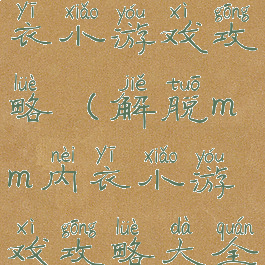 yī xiǎo yóu xì gōng
衣小游戏攻
lüè jiě tuō
略(解脱m
nèi yī xiǎo yóu
m内衣小游
xì gōng lüè dà quán
戏攻略大全